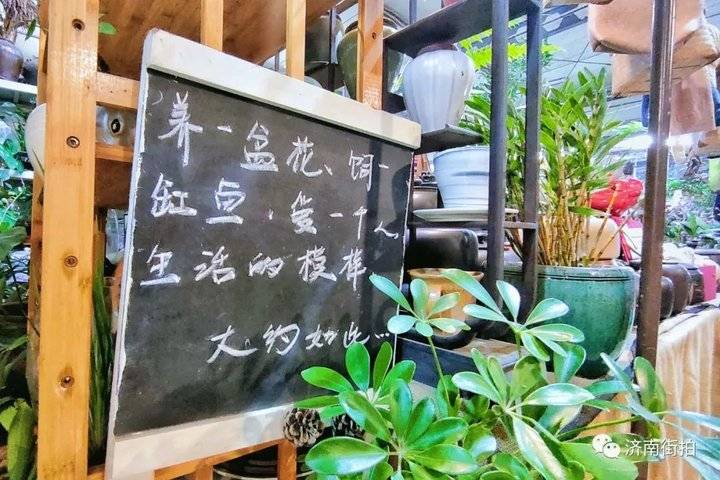 养一盆花、饲一
缸鱼，爱一个人，
生活的模样
大约如此…
济南街拍